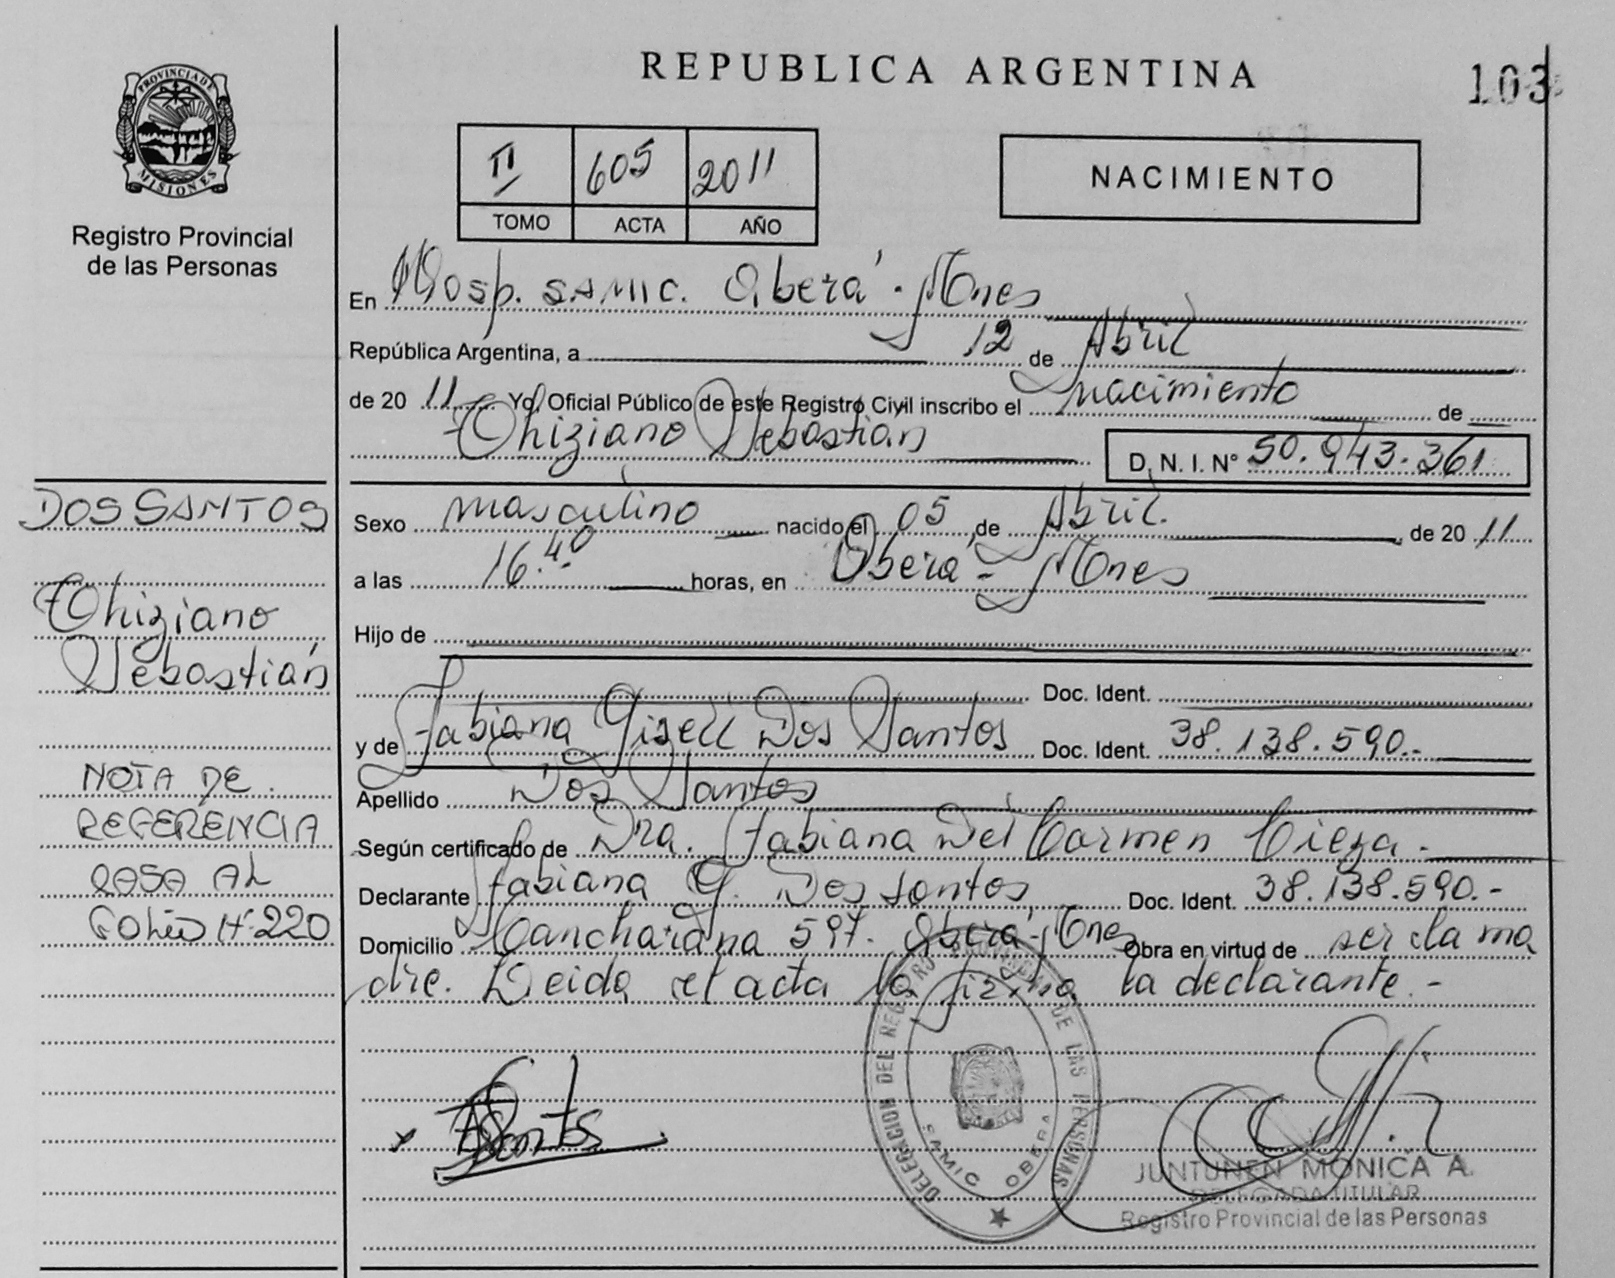 REPUBLICA ARGENTINA
103
PROVINCIA DE
MISIONES
Registro Provincial
de las Personas
II 605 2011
TOMO ACTA AÑO
NACIMIENTO
En Hosp. SAMIC. Oberá - Mnes
República Argentina, a 12 de Abril
de 20 11 Yo, Oficial Público de este Registro Civil inscribo el nacimiento de
Thiziano Sebastián
D. N. I. Nº 50.943.361
Sexo masculino nacido el 05 de Abril. de 20 11
a las 16.40 horas, en Oberá - Mnes
Hijo de
Doc. Ident.
y de Fabiana Gisell Dos Santos Doc. Ident. 38.138.590.-
Apellido Dos Santos
Según certificado de Dra. Fabiana Del Carmen Cieza.-
Declarante Fabiana G. Dos santos Doc. Ident. 38.138.590.-
Domicilio 597. Oberá - Mnes Obra en virtud de ser la ma
dre. Leida el acta la firma la declarante.-
DOS SANTOS
Thiziano
Sebastián
NOTA DE
REFERENCIA
PASA AL
FOLIO Nº 220
x FDSantos
DELEGACION DEL REGISTRO PROVINCIAL DE LAS PERSONAS
SAMIC OBERA
JUNTUNEN MONICA A.
DELEGADA TITULAR
Registro Provincial de las Personas